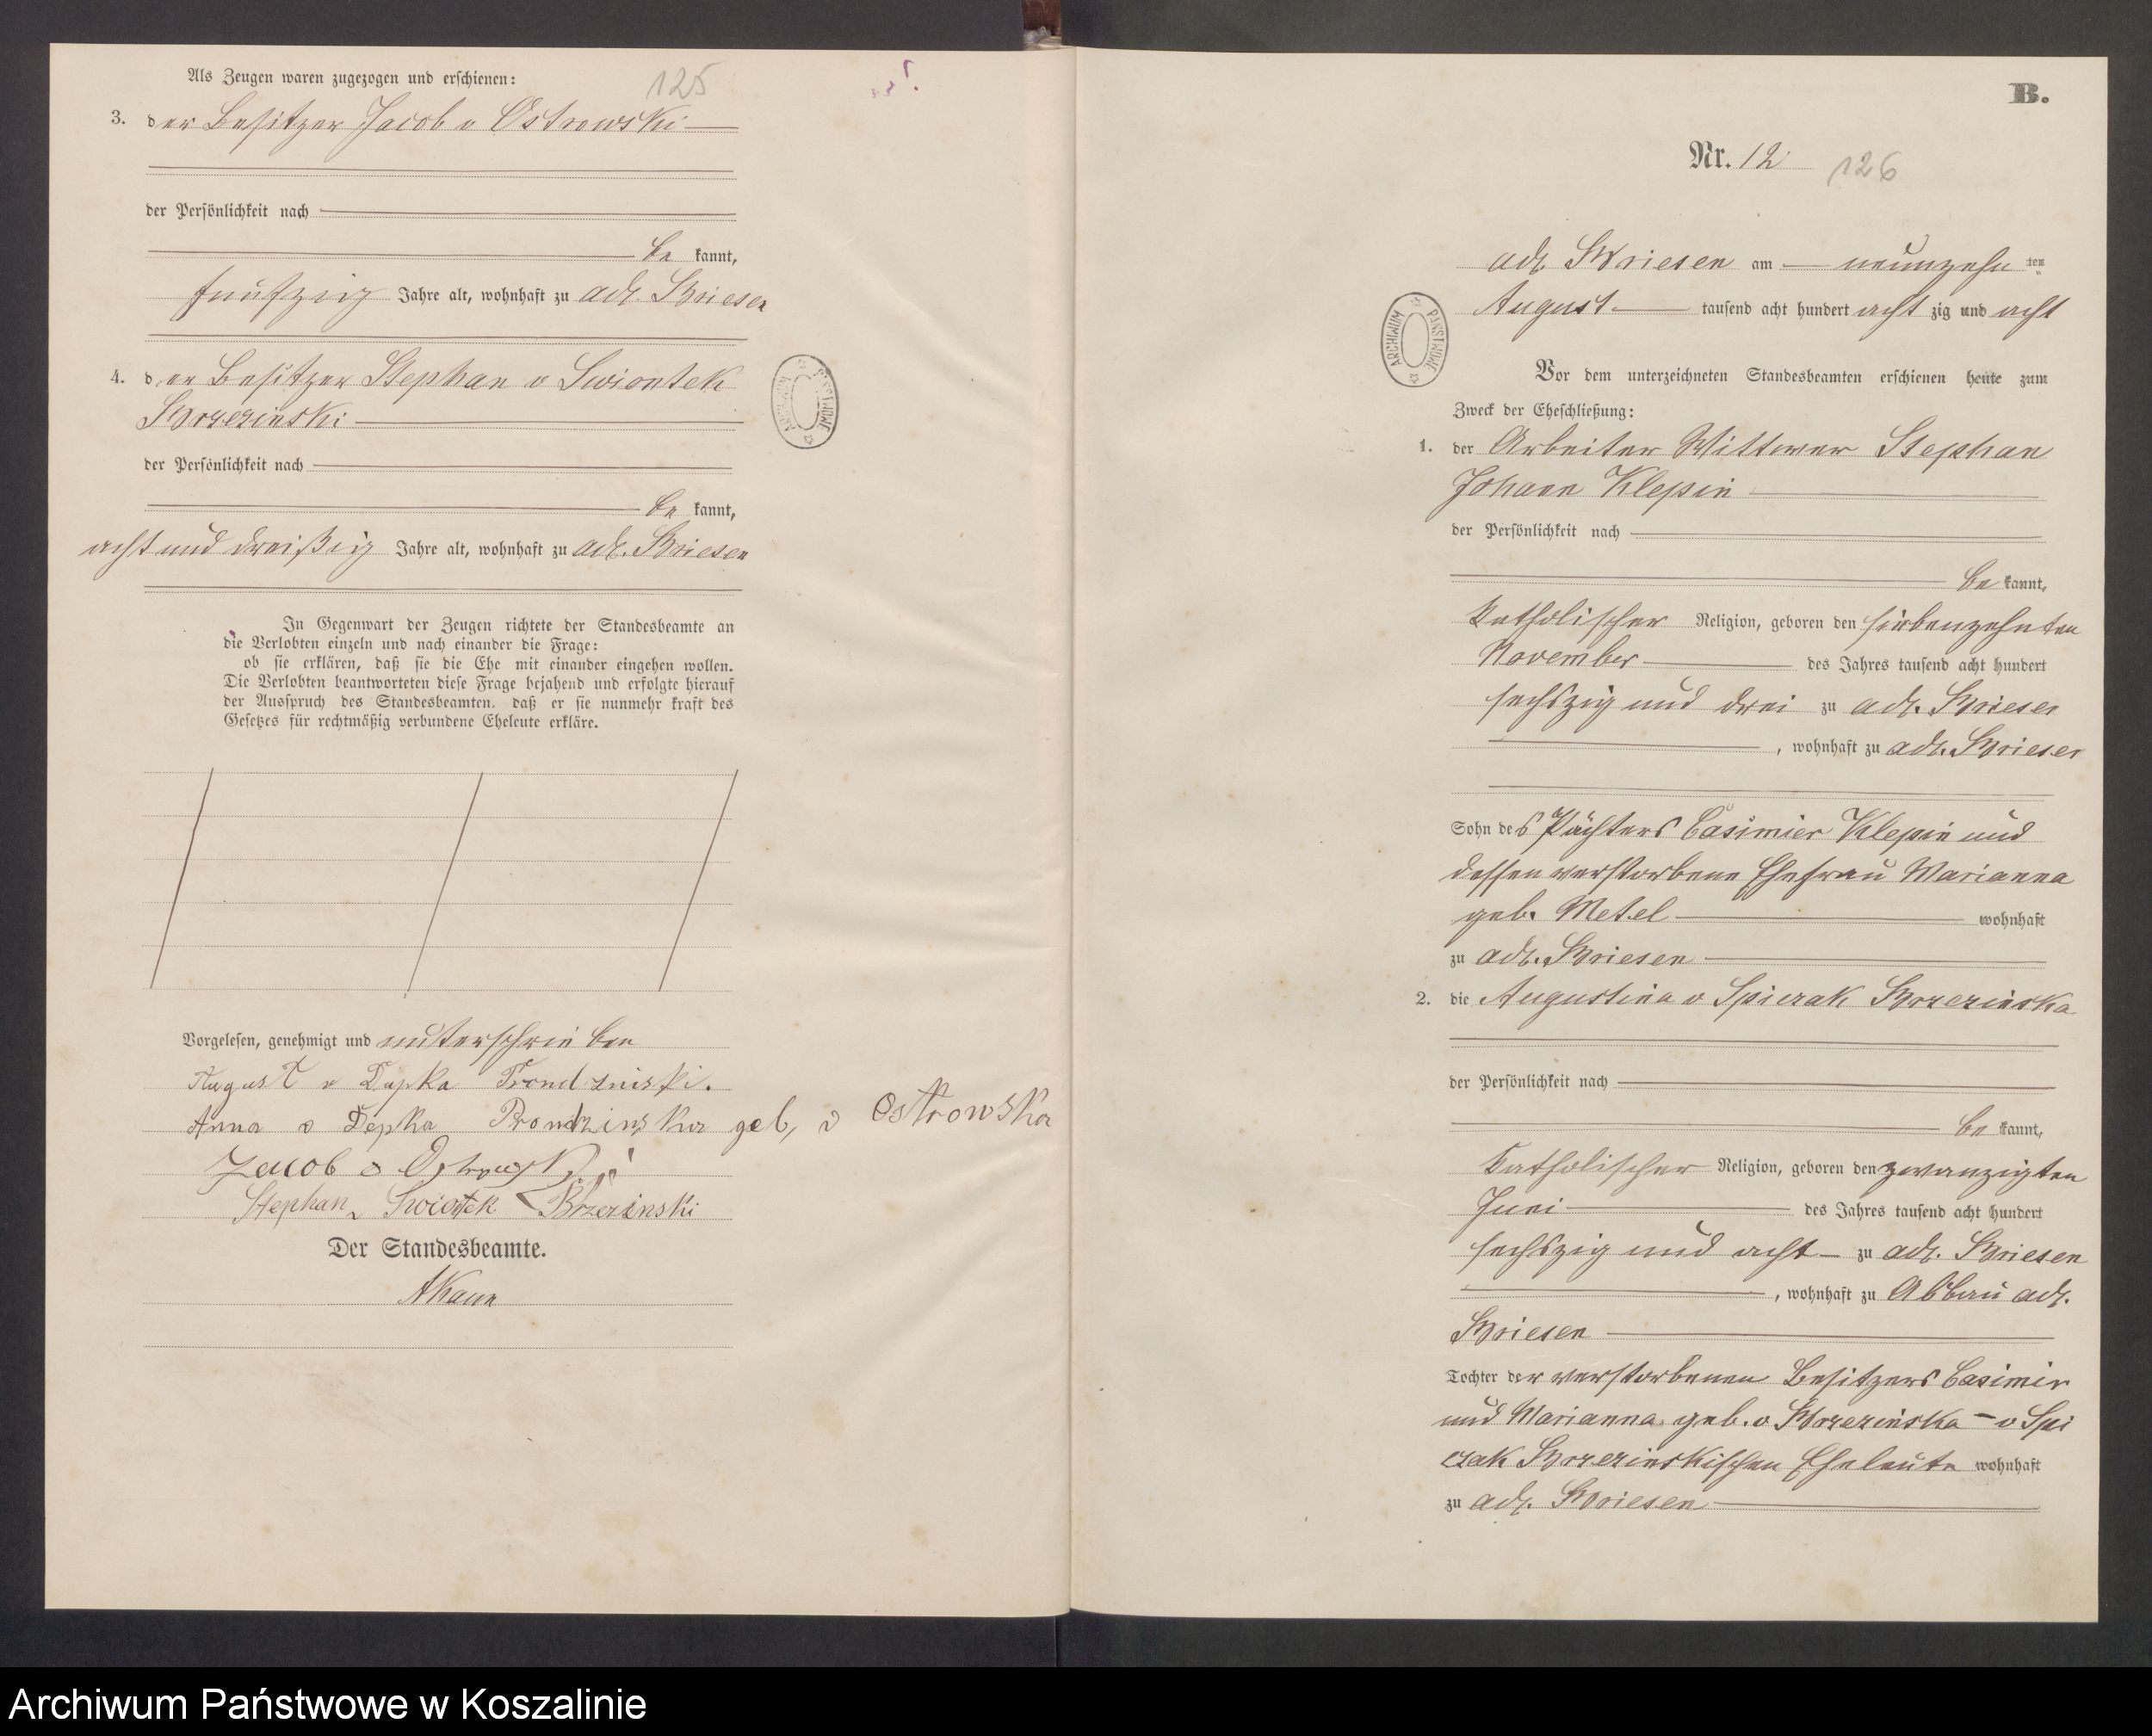 Als Zeugen waren zugezogen und erschienen:
125
3. der Besitzer Jacob v Ostrowski
der Persönlichkeit nach
be kannt,
fünfzig Jahre alt, wohnhaft zu adl. Briesen
4. der Besitzer Stephan v Swiontek
Brzezinski
der Persönlichkeit nach
be kannt,
acht und dreißig Jahre alt, wohnhaft zu adl. Briesen
In Gegenwart der Zeugen richtete der Standesbeamte an
die Verlobten einzeln und nach einander die Frage:
ob sie erklären, daß sie die Ehe mit einander eingehen wollen.
Die Verlobten beantworteten diese Frage bejahend und erfolgte hierauf
der Ausspruch des Standesbeamten, daß er sie nunmehr kraft des
Gesetzes für rechtmäßig verbundene Eheleute erkläre.
Vorgelesen, genehmigt und unterschrieben
August v Depka Prondzinski.
Anna v Depka Prondzinska geb, v Ostrowska
Jacob v Ostrowski
Stephan v Swiotek Brzezinski
Der Standesbeamte.
AKaun
ARCHIWUM PAŃSTWOWE
B.
Nr. 12
126
adl. Briesen am neunzehn ten
August tausend acht hundert acht zig und acht
ARCHIWUM PAŃSTWOWE
Vor dem unterzeichneten Standesbeamten erschienen heute zum
Zweck der Eheschließung:
1. der Arbeiter Wittwer Stephan
Johann Klepin
der Persönlichkeit nach
be kannt,
katholischer Religion, geboren den siebenzehnten
November des Jahres tausend acht hundert
sechszig und drei zu adl. Briesen
, wohnhaft zu adl. Briesen
Sohn des Pächters Casimier Klepin und
dessen verstorbene Ehefrau Marianna
geb. Metel wohnhaft
zu adl. Briesen
2. die Augustina v Spiczak Brzezinska
der Persönlichkeit nach
be kannt,
katholischer Religion, geboren den zwanzigten
Juni des Jahres tausend acht hundert
sechszig und acht zu adl. Briesen
, wohnhaft zu Abbau adl.
Briesen
Tochter der verstorbenen Besitzers Casimir
und Marianna geb. v Brzezinska - v Spi
czak Brzezinskischen Eheleute wohnhaft
zu adl. Briesen
Archiwum Państwowe w Koszalinie